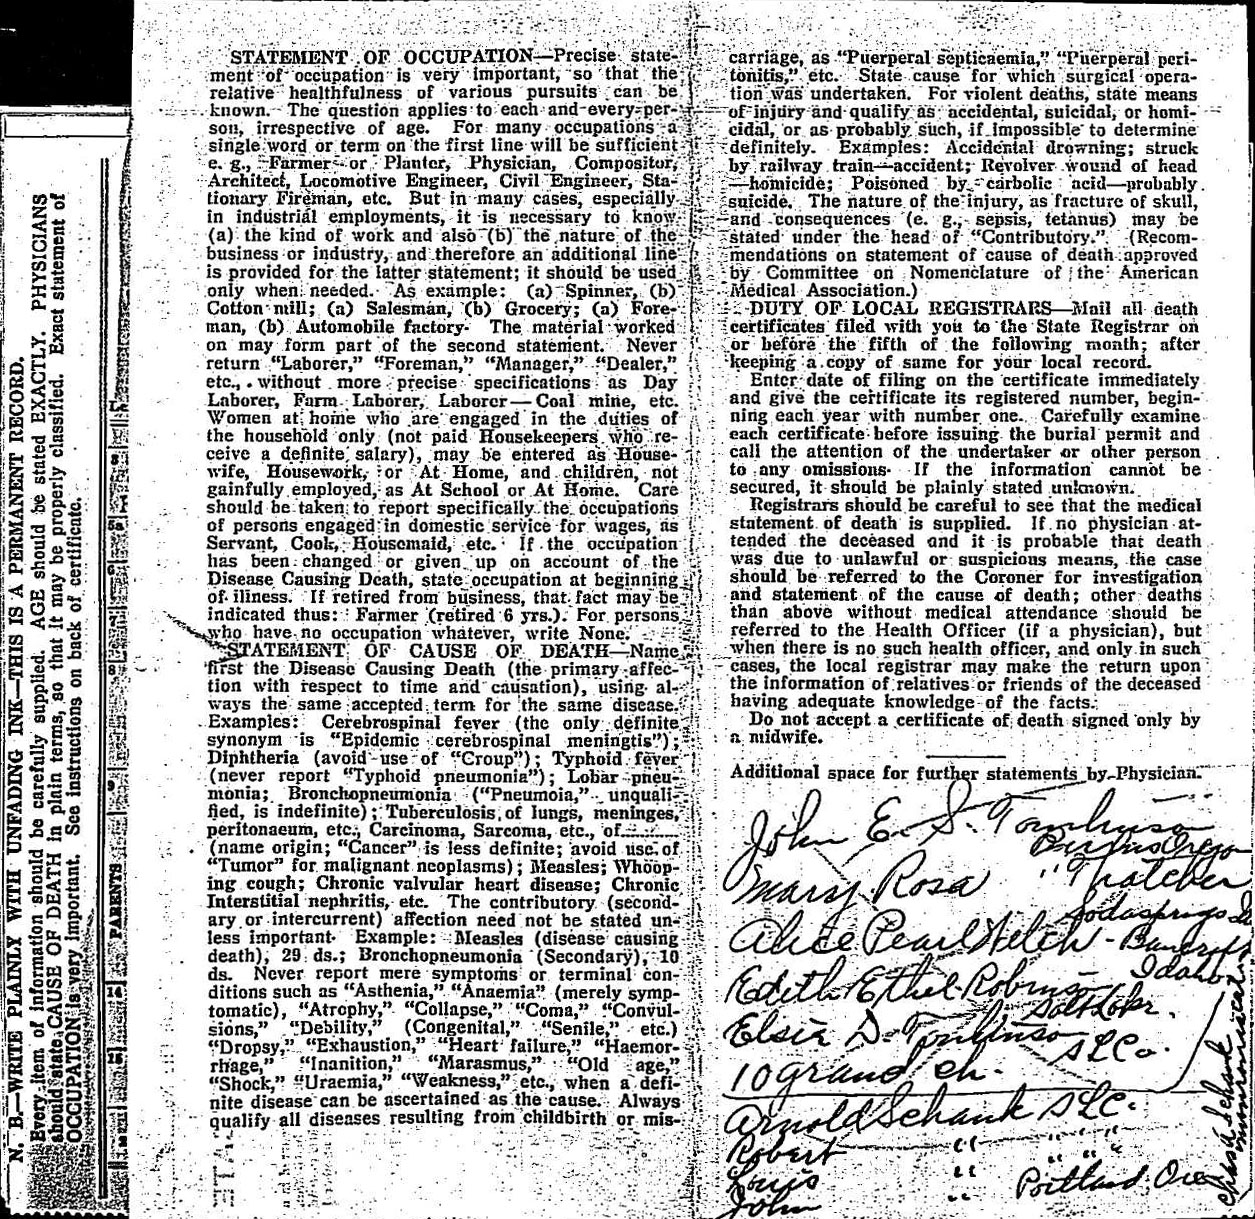 N. B.—WRITE PLAINLY WITH UNFADING INK—THIS IS A PERMANENT RECORD.
Every item of information should be carefully supplied. AGE should be stated EXACTLY. PHYSICIANS
should state CAUSE OF DEATH in plain terms, so that it may be properly classified. Exact statement of
OCCUPATION is very important. See instructions on back of certificate.
PARENTS
STATEMENT OF OCCUPATION—Precise state-
ment of occupation is very important, so that the
relative healthfulness of various pursuits can be
known. The question applies to each and every per-
son, irrespective of age. For many occupations a
single word or term on the first line will be sufficient
e. g., Farmer or Planter, Physician, Compositor,
Architect, Locomotive Engineer, Civil Engineer, Sta-
tionary Fireman, etc. But in many cases, especially
in industrial employments, it is necessary to know
(a) the kind of work and also (b) the nature of the
business or industry, and therefore an additional line
is provided for the latter statement; it should be used
only when needed. As example: (a) Spinner, (b)
Cotton mill; (a) Salesman, (b) Grocery; (a) Fore-
man, (b) Automobile factory. The material worked
on may form part of the second statement. Never
return "Laborer," "Foreman," "Manager," "Dealer,"
etc., without more precise specifications as Day
Laborer, Farm Laborer, Laborer—Coal mine, etc.
Women at home who are engaged in the duties of
the household only (not paid Housekeepers who re-
ceive a definite salary), may be entered as House-
wife, Housework, or At Home, and children, not
gainfully employed, as At School or At Home. Care
should be taken to report specifically the occupations
of persons engaged in domestic service for wages, as
Servant, Cook, Housemaid, etc. If the occupation
has been changed or given up on account of the
Disease Causing Death, state occupation at beginning
of illness. If retired from business, that fact may be
indicated thus: Farmer (retired 6 yrs.). For persons
who have no occupation whatever, write None.
STATEMENT OF CAUSE OF DEATH—Name
first the Disease Causing Death (the primary affec-
tion with respect to time and causation), using al-
ways the same accepted term for the same disease.
Examples: Cerebrospinal fever (the only definite
synonym is "Epidemic cerebrospinal meningtis");
Diphtheria (avoid use of "Croup"); Typhoid fever
(never report "Typhoid pneumonia"); Lobar pneu-
monia; Bronchopneumonia ("Pneumoia," unquali-
fied, is indefinite); Tuberculosis of lungs, meninges,
peritonaeum, etc., Carcinoma, Sarcoma, etc., of........
(name origin; "Cancer" is less definite; avoid use of
"Tumor" for malignant neoplasms); Measles; Whoop-
ing cough; Chronic valvular heart disease; Chronic
Interstitial nephritis, etc. The contributory (second-
ary or intercurrent) affection need not be stated un-
less important. Example: Measles (disease causing
death), 29 ds.; Bronchopneumonia (Secondary), 10
ds. Never report mere symptoms or terminal con-
ditions such as "Asthenia," "Anaemia" (merely symp-
tomatic), "Atrophy," "Collapse," "Coma," "Convul-
sions," "Debility," (Congenital," "Senile," etc.)
"Dropsy," "Exhaustion," "Heart failure," "Haemor-
rhage," "Inanition," "Marasmus," "Old age,"
"Shock," "Uraemia," "Weakness," etc., when a defi-
nite disease can be ascertained as the cause. Always
qualify all diseases resulting from childbirth or mis-
carriage, as "Puerperal septicaemia," "Puerperal peri-
tonitis," etc. State cause for which surgical opera-
tion was undertaken. For violent deaths, state means
of injury and qualify as accidental, suicidal, or homi-
cidal, or as probably such, if impossible to determine
definitely. Examples: Accidental drowning; struck
by railway train—accident; Revolver wound of head
—homicide; Poisoned by carbolic acid—probably
suicide. The nature of the injury, as fracture of skull,
and consequences (e. g., sepsis, tetanus) may be
stated under the head of "Contributory." (Recom-
mendations on statement of cause of death approved
by Committee on Nomenclature of the American
Medical Association.)
DUTY OF LOCAL REGISTRARS—Mail all death
certificates filed with you to the State Registrar on
or before the fifth of the following month; after
keeping a copy of same for your local record.
Enter date of filing on the certificate immediately
and give the certificate its registered number, begin-
ning each year with number one. Carefully examine
each certificate before issuing the burial permit and
call the attention of the undertaker or other person
to any omissions. If the information cannot be
secured, it should be plainly stated unknown.
Registrars should be careful to see that the medical
statement of death is supplied. If no physician at-
tended the deceased and it is probable that death
was due to unlawful or suspicious means, the case
should be referred to the Coroner for investigation
and statement of the cause of death; other deaths
than above without medical attendance should be
referred to the Health Officer (if a physician), but
when there is no such health officer, and only in such
cases, the local registrar may make the return upon
the information of relatives or friends of the deceased
having adequate knowledge of the facts.
Do not accept a certificate of death signed only by
a midwife.
Additional space for further statements by Physician.
John E. S. Tomlinson
Burns Oregon
Mary Rosa " Thatcher
Sodasprings
Alice Pearl Welch - Bancroft
Idaho
Edith Ethel Robinson
Salt Lake
Elsie D. Tomlinson
SLC
10 grand ch.
Arnold Schank SLC.
Robert " " " "
Louis " Portland, Ore
John "
Chas A Schank